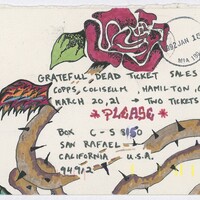 GRATEFUL DEAD TICKET SALES
COPPS, COLISEUM, HAMILTON,
MARCH 20,21 → TWO TICKETS
*PLEASE*
BOX C-S 8150
SAN RAFAEL
CALIFORNIA U.S.A.
94912
JAN